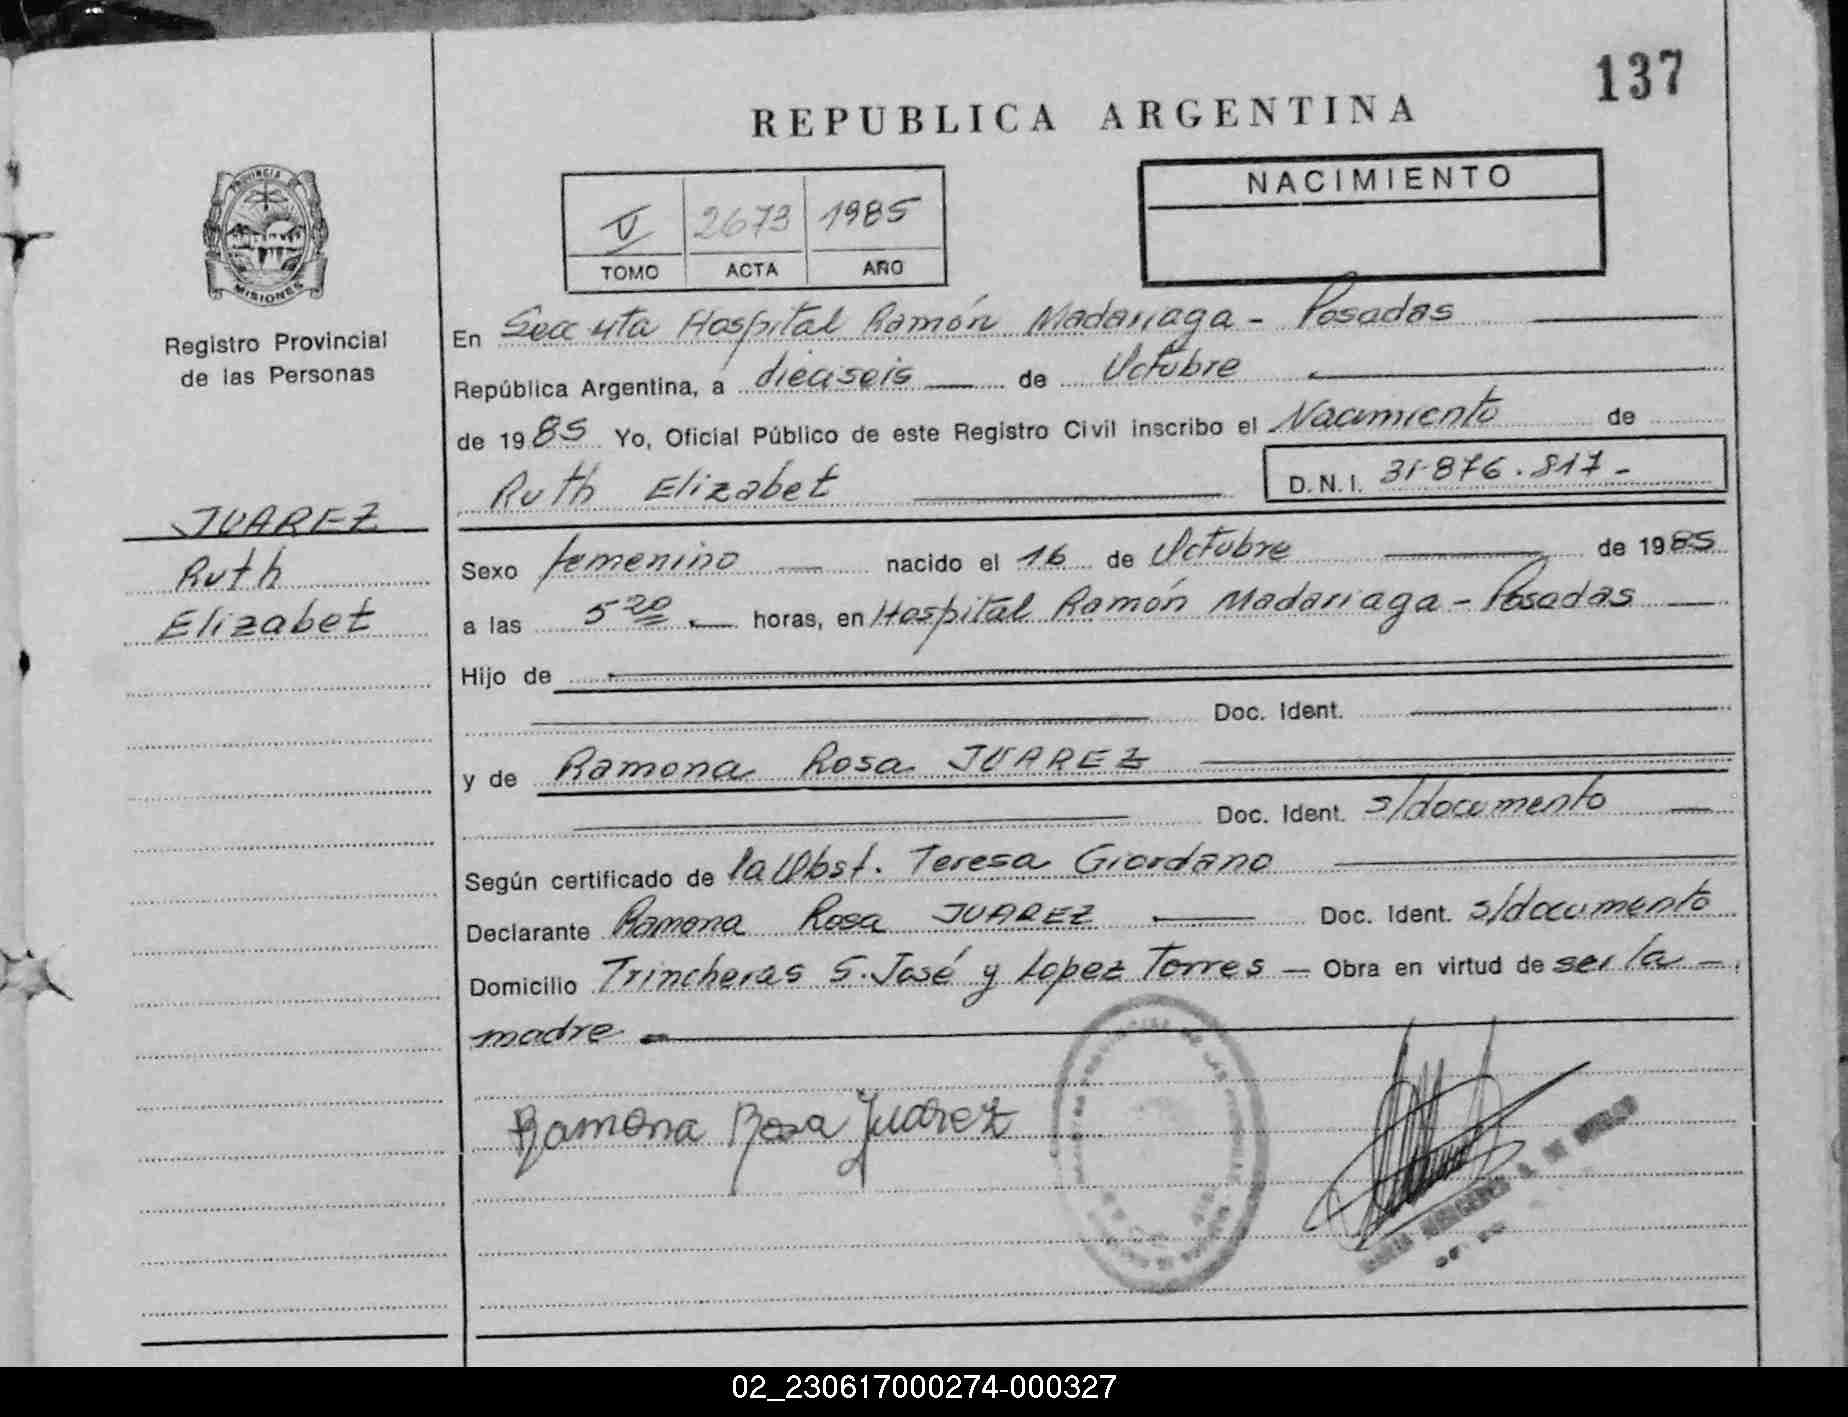 137
REPUBLICA ARGENTINA
PROVINCIA DE
MISIONES
Registro Provincial
de las Personas
V 2673 1985
TOMO ACTA AÑO
NACIMIENTO
En Secc 4ta Hospital Ramón Madariaga - Posadas
República Argentina, a dieciseis de Octubre
de 1985 Yo, Oficial Público de este Registro Civil inscribo el Nacimiento de
Ruth Elizabet D.N.I. 31.876.817-
JUAREZ
Ruth
Elizabet
Sexo femenino nacido el 16 de Octubre de 1985
a las 5 20 horas, en Hospital Ramón Madariaga - Posadas
Hijo de
Doc. Ident.
y de Ramona Rosa JUAREZ
Doc. Ident. s/documento
Según certificado de la Obst. Teresa Giordano
Declarante Ramona Rosa JUAREZ Doc. Ident. s/documento
Domicilio Trincheras S. José y Lopez Torres - Obra en virtud de ser la -
madre
Ramona Rosa Juarez
02_230617000274-000327